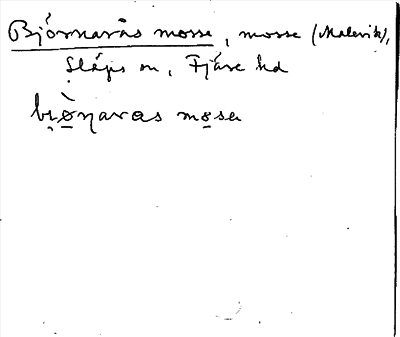 Björnarås mosse, mosse (Malevik),
Släps sn, Fjäre hd
bi̯ò̱ŋaras mo̱sa